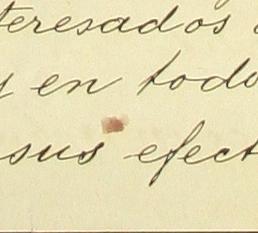 teresados
y en todo
sus efect